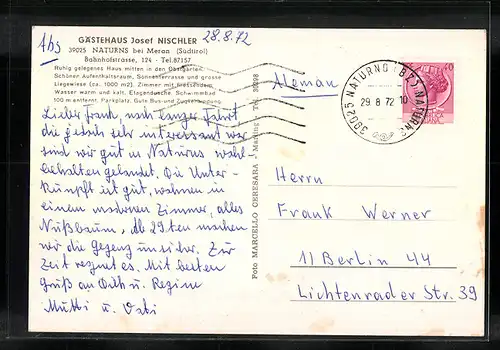 Abs
GÄSTEHAUS Josef NISCHLER
28.8.72
39025 NATURNS bei Meran (Südtirol)
Bahnhofstrasse, 124 - Tel. 87157
Ruhig gelegenes Haus mitten in den Obstgärten.
Schöner Aufenthaltsraum, Sonnenterrasse und grosse
Liegewiese (ca. 1000 m2). Zimmer mit fliessendem
Wasser warm und kalt. Etagendusche. Schwimmbad
100 m entfernt. Parkplatz. Gute Bus- und Zugverbindung.
Lieber Frank, nach langer Fahrt,
die jedoch sehr interessant war
sind wir gut in Naturns wohl-
behalten gelandet. Die Unter-
kunft ist gut, wohnen in
einem modernen Zimmer, alles
Nußbaum. Ab 29.ten machen
wir die Gegend unsicher. Zur
Zeit regnet es. Mit besten
Gruß an Dich u. Regine
Mutti u. Vati
Foto MARCELLO CERESARA - Marling - Tel. 30298
39025 NATURNO (BZ) NATURNS
29 8 72 10
Herrn
Frank Werner
11 Berlin 44
Lichtenrader Str. 39